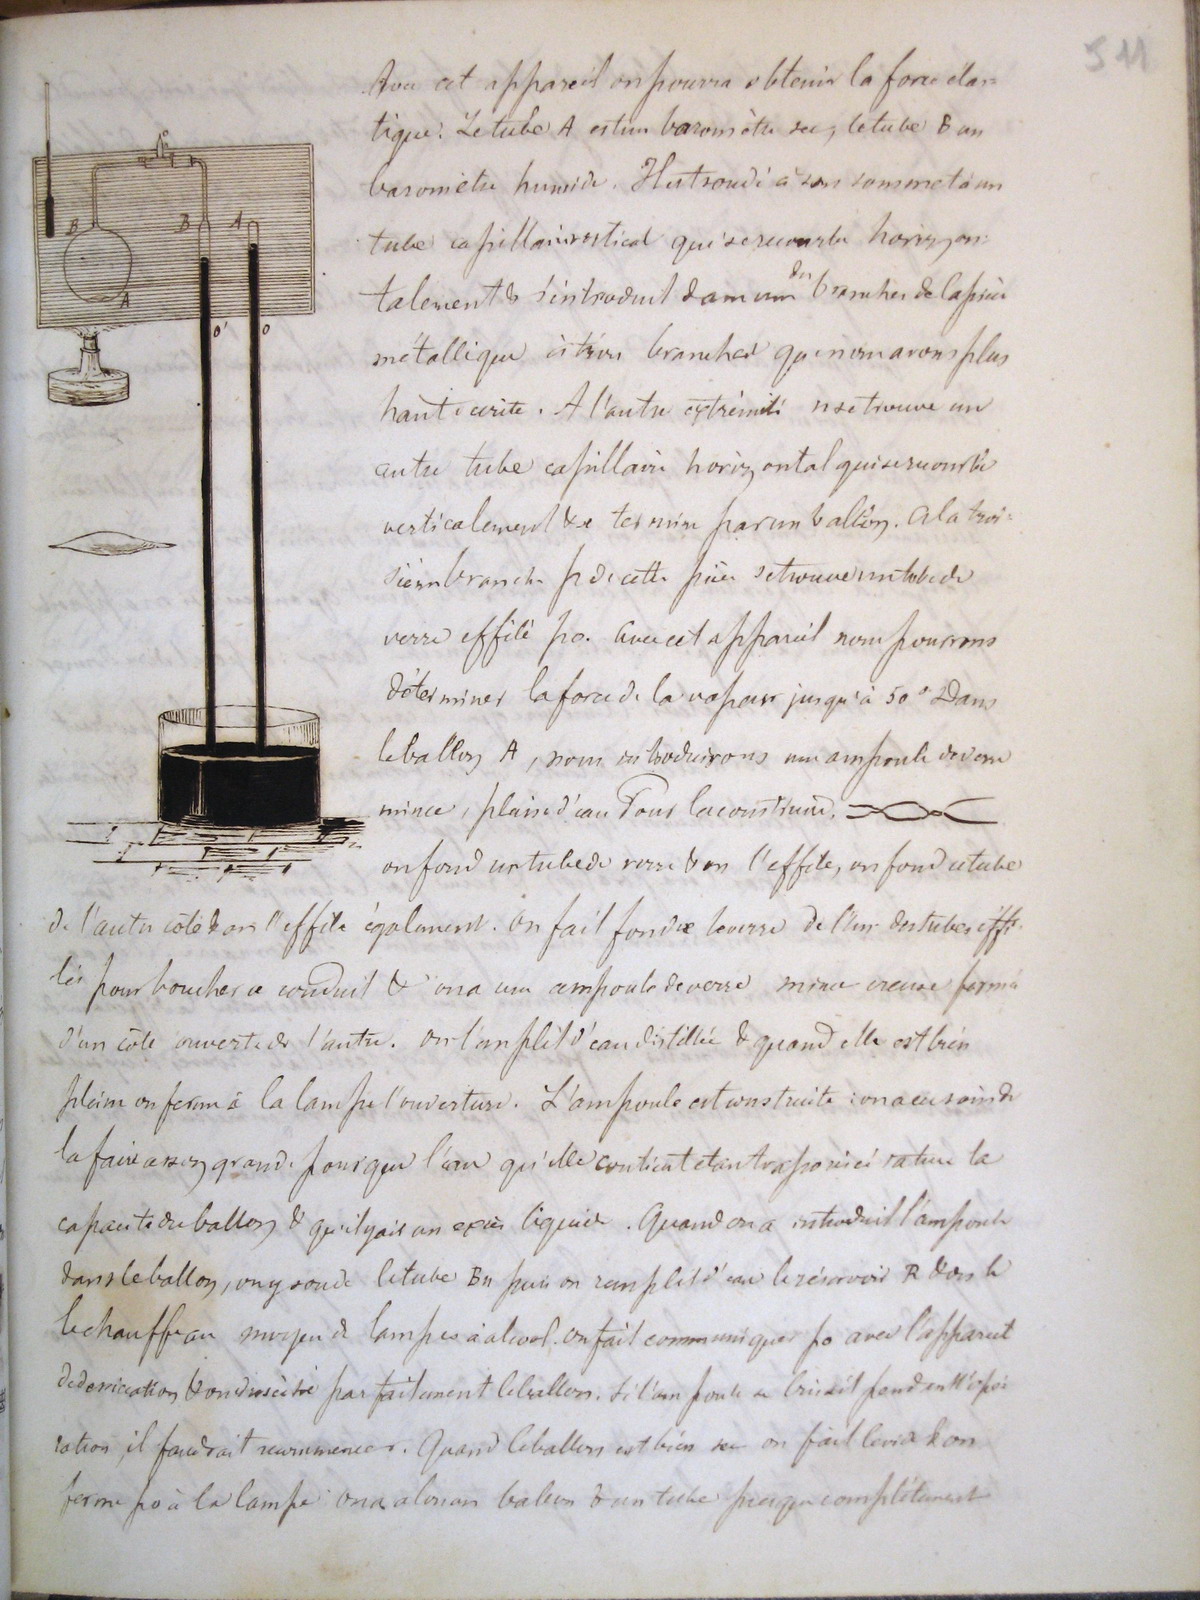 511
Avec cet appareil on pourra obtenir la force élas=
tique. Le tube A est un baromètre sec, le tube B un
baromètre humide. Il est soudé à son sommet à un
tube capillaire vertical qui se recourbe horizon=
talement & s'introduit dans une des branches de la pièce
métallique à trois branches que nous avons plus
haut décrite. A l'autre extrémité n se trouve un
autre tube capillaire horizontal qui se recourbe
verticalement & se termine par un ballon. A la troi=
sième branche p de cette pièce se trouve un tube de
verre effilé po. Avec cet appareil nous pourrons
déterminer la force de la vapeur jusqu'à 50° Dans
le ballon A, nous introduirons une ampoule de verre
mince, pleine d'eau Pour la construire,
on fond un tube de verre & on l'effile, on fond ce tube
de l'autre côté & on l'effile également. On fait fondre le verre de l'un des tubes effi
lés pour boucher ce conduit & on a une ampoule de verre mince creuse fermé
d'un côté ouverte de l'autre. On l'emplit d'eau distillée & quand elle est bien
pleine on ferme à la lampe l'ouverture. L'ampoule est construite : on a eu soin de
la faire assez grande pour que l'eau qu'elle contient étant vaporisée sature la
capacité du ballon & qu'il y ait un excès liquide. Quand on a introduit l'ampoule
dans le ballon, on y soude le tube Bn puis on remplit d'eau le réservoir R & on le
chauffe au moyen de lampes à alcool. On fait communiquer po avec l'appareil
de dessiccation & on dessèche parfaitement le ballon. Si l'ampoule se brisait pendant l'opé=
ration, il faudrait recommencer. Quand le ballon est bien sec on fait le vide & on
ferme po à la lampe on a alors un ballon & un tube presque complètement
B
A
B
A
o'
o